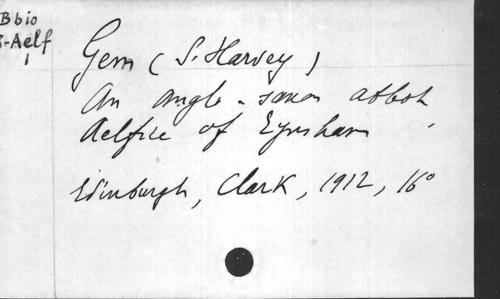 B bio
3-Aelf
1
Gem (S. Harvey)
An anglo-saxon abbot
Aelfric of Eynsham.
Edinburgh, Clark, 1912, 16°